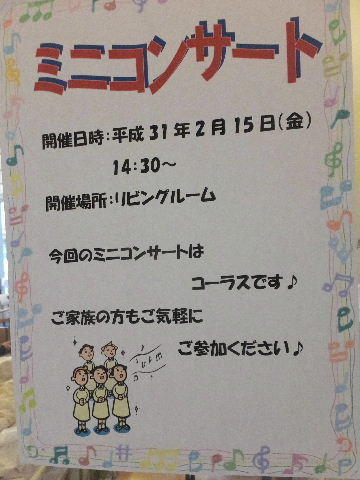 ミニコンサート
開催日時:平成31年2月15日(金)
14:30～
開催場所:リビングルーム
今回のミニコンサートは
コーラスです♪
ご家族の方もご気軽に
ご参加ください♪